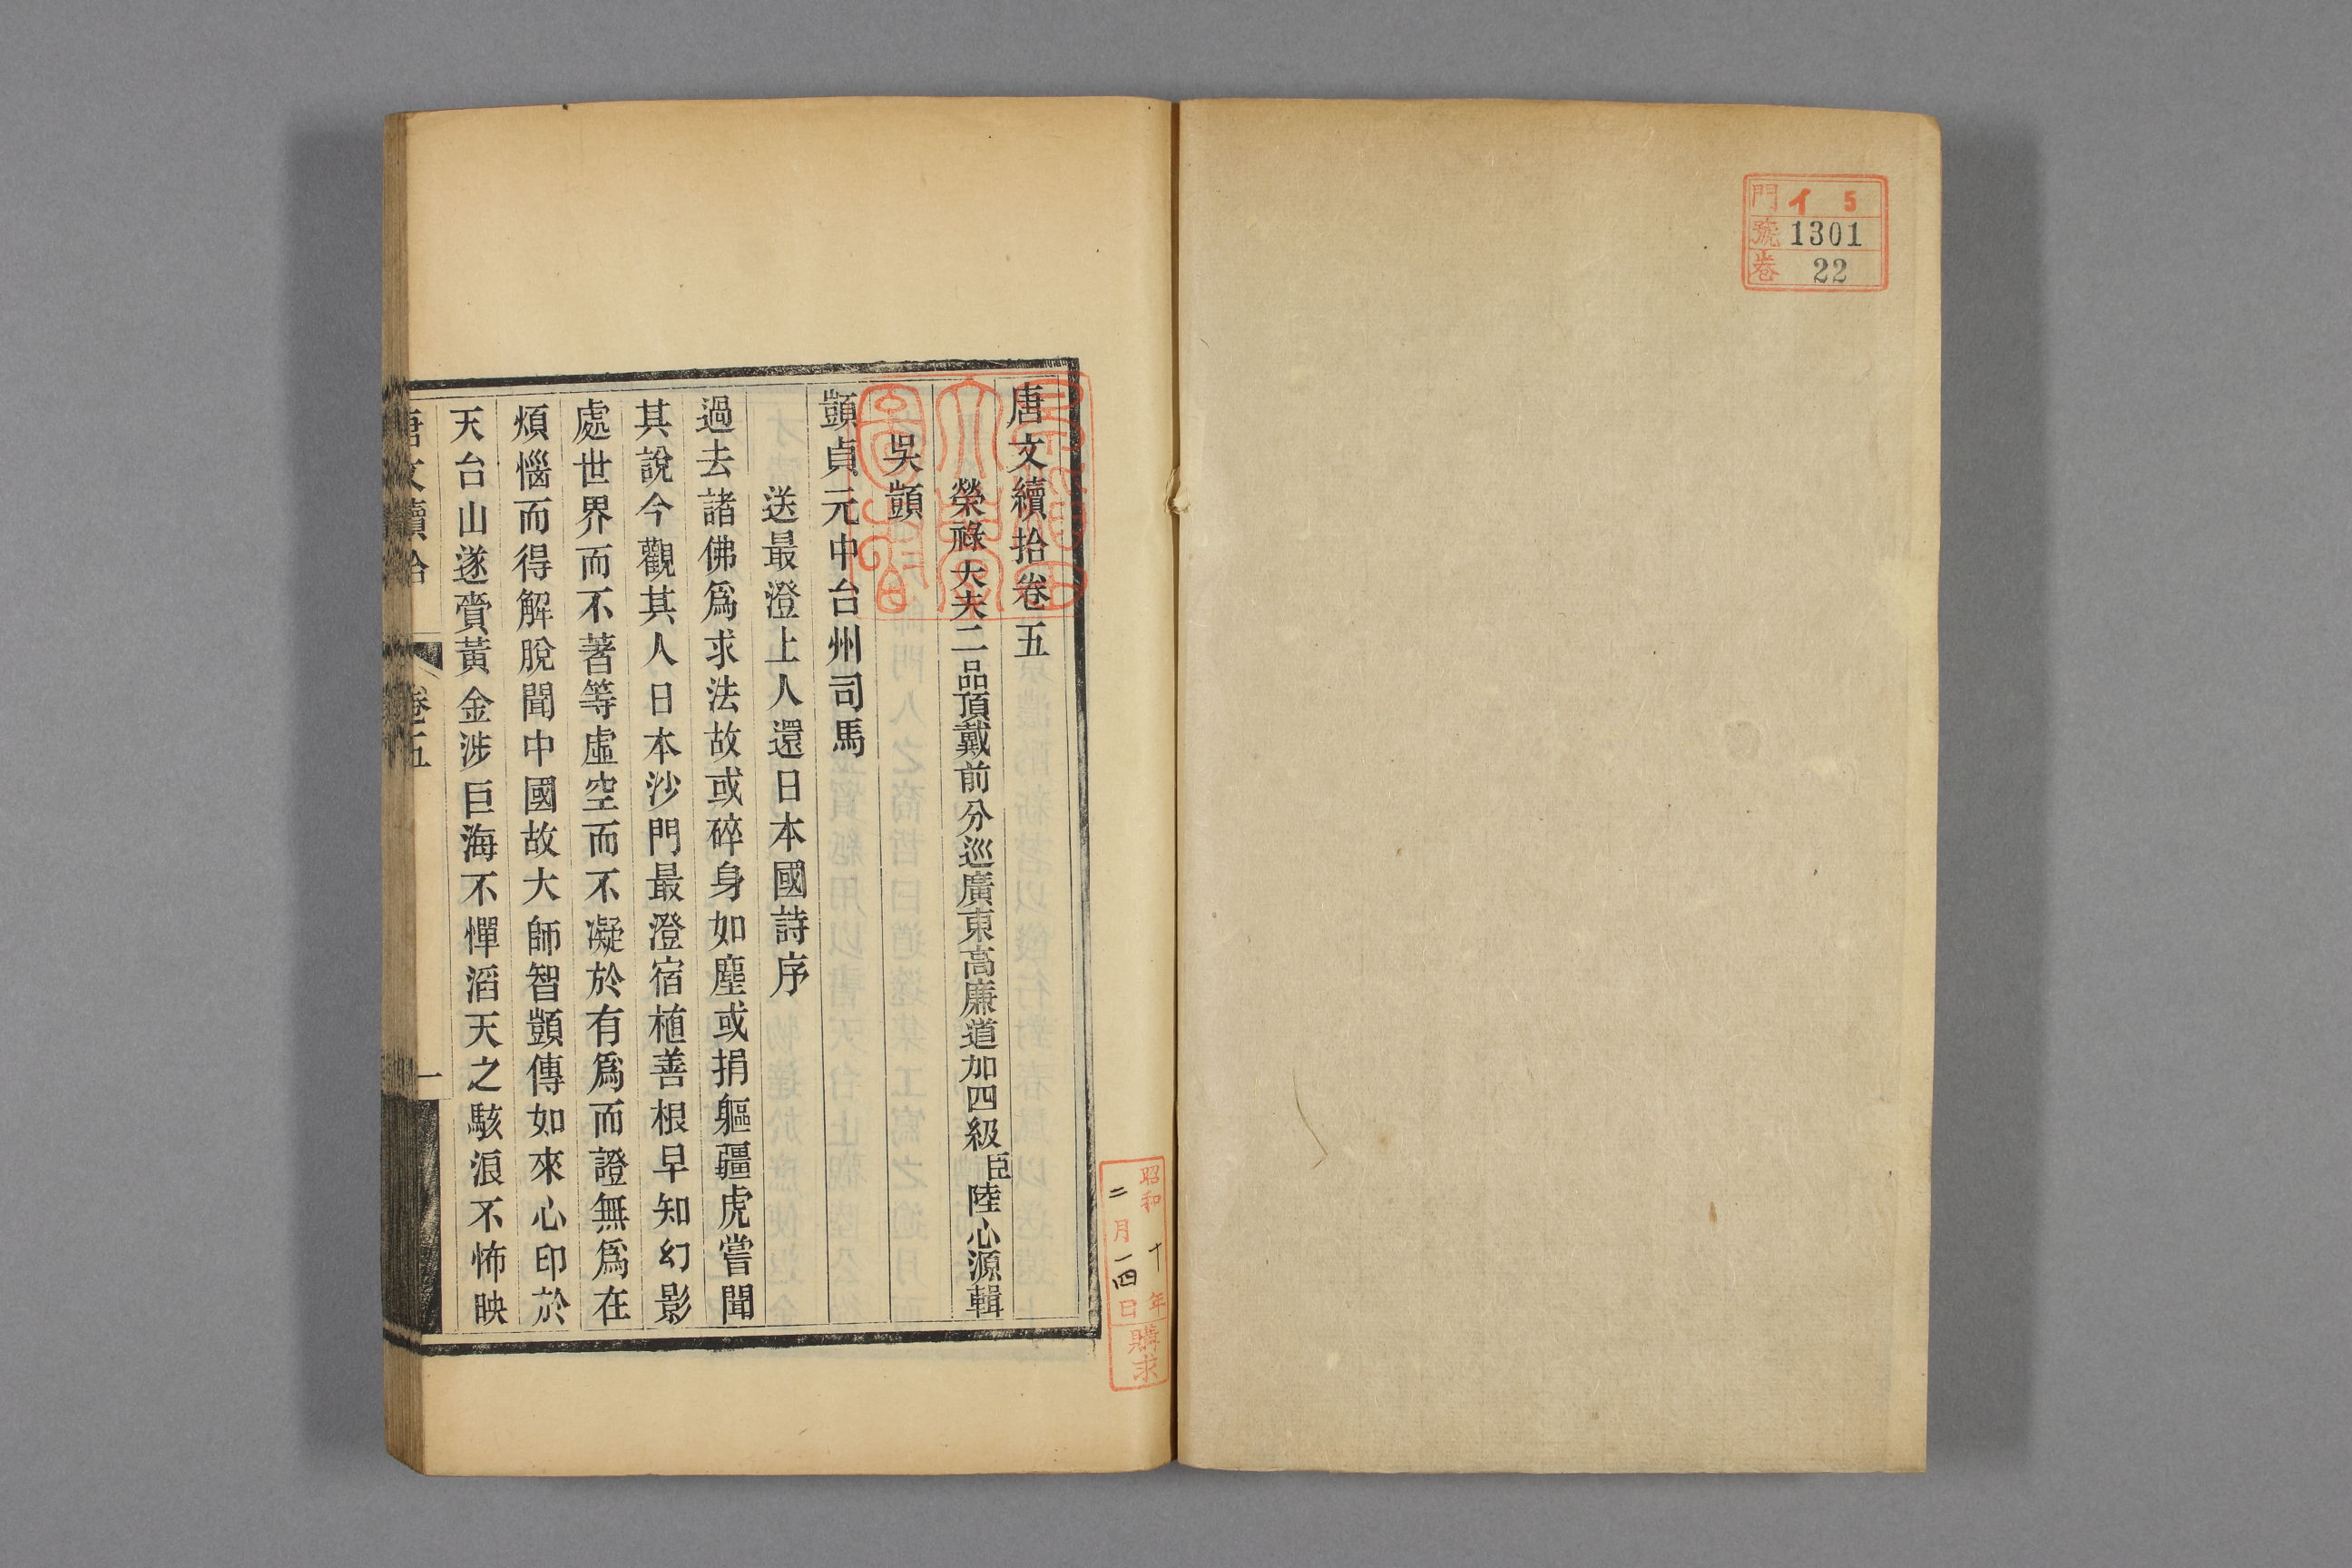 門 イ 5
號 1301
卷 22
唐文續拾卷五
榮祿大夫二品頂戴前分巡廣東高廉道加四級臣陸心源輯
吳顗
顗貞元中台州司馬
送最澄上人還日本國詩序
過去諸佛爲求法故或碎身如塵或捐軀疆虎嘗聞
其說今觀其人日本沙門最澄宿植善根早知幻影
處世界而不著等虛空而不凝於有爲而證無爲在
煩惱而得解脫聞中國故大師智顗傳如來心印於
天台山遂賫黃金涉巨海不憚滔天之駭浪不怖映
唐文續拾 卷五 一
昭和十年
二月一四日
購求